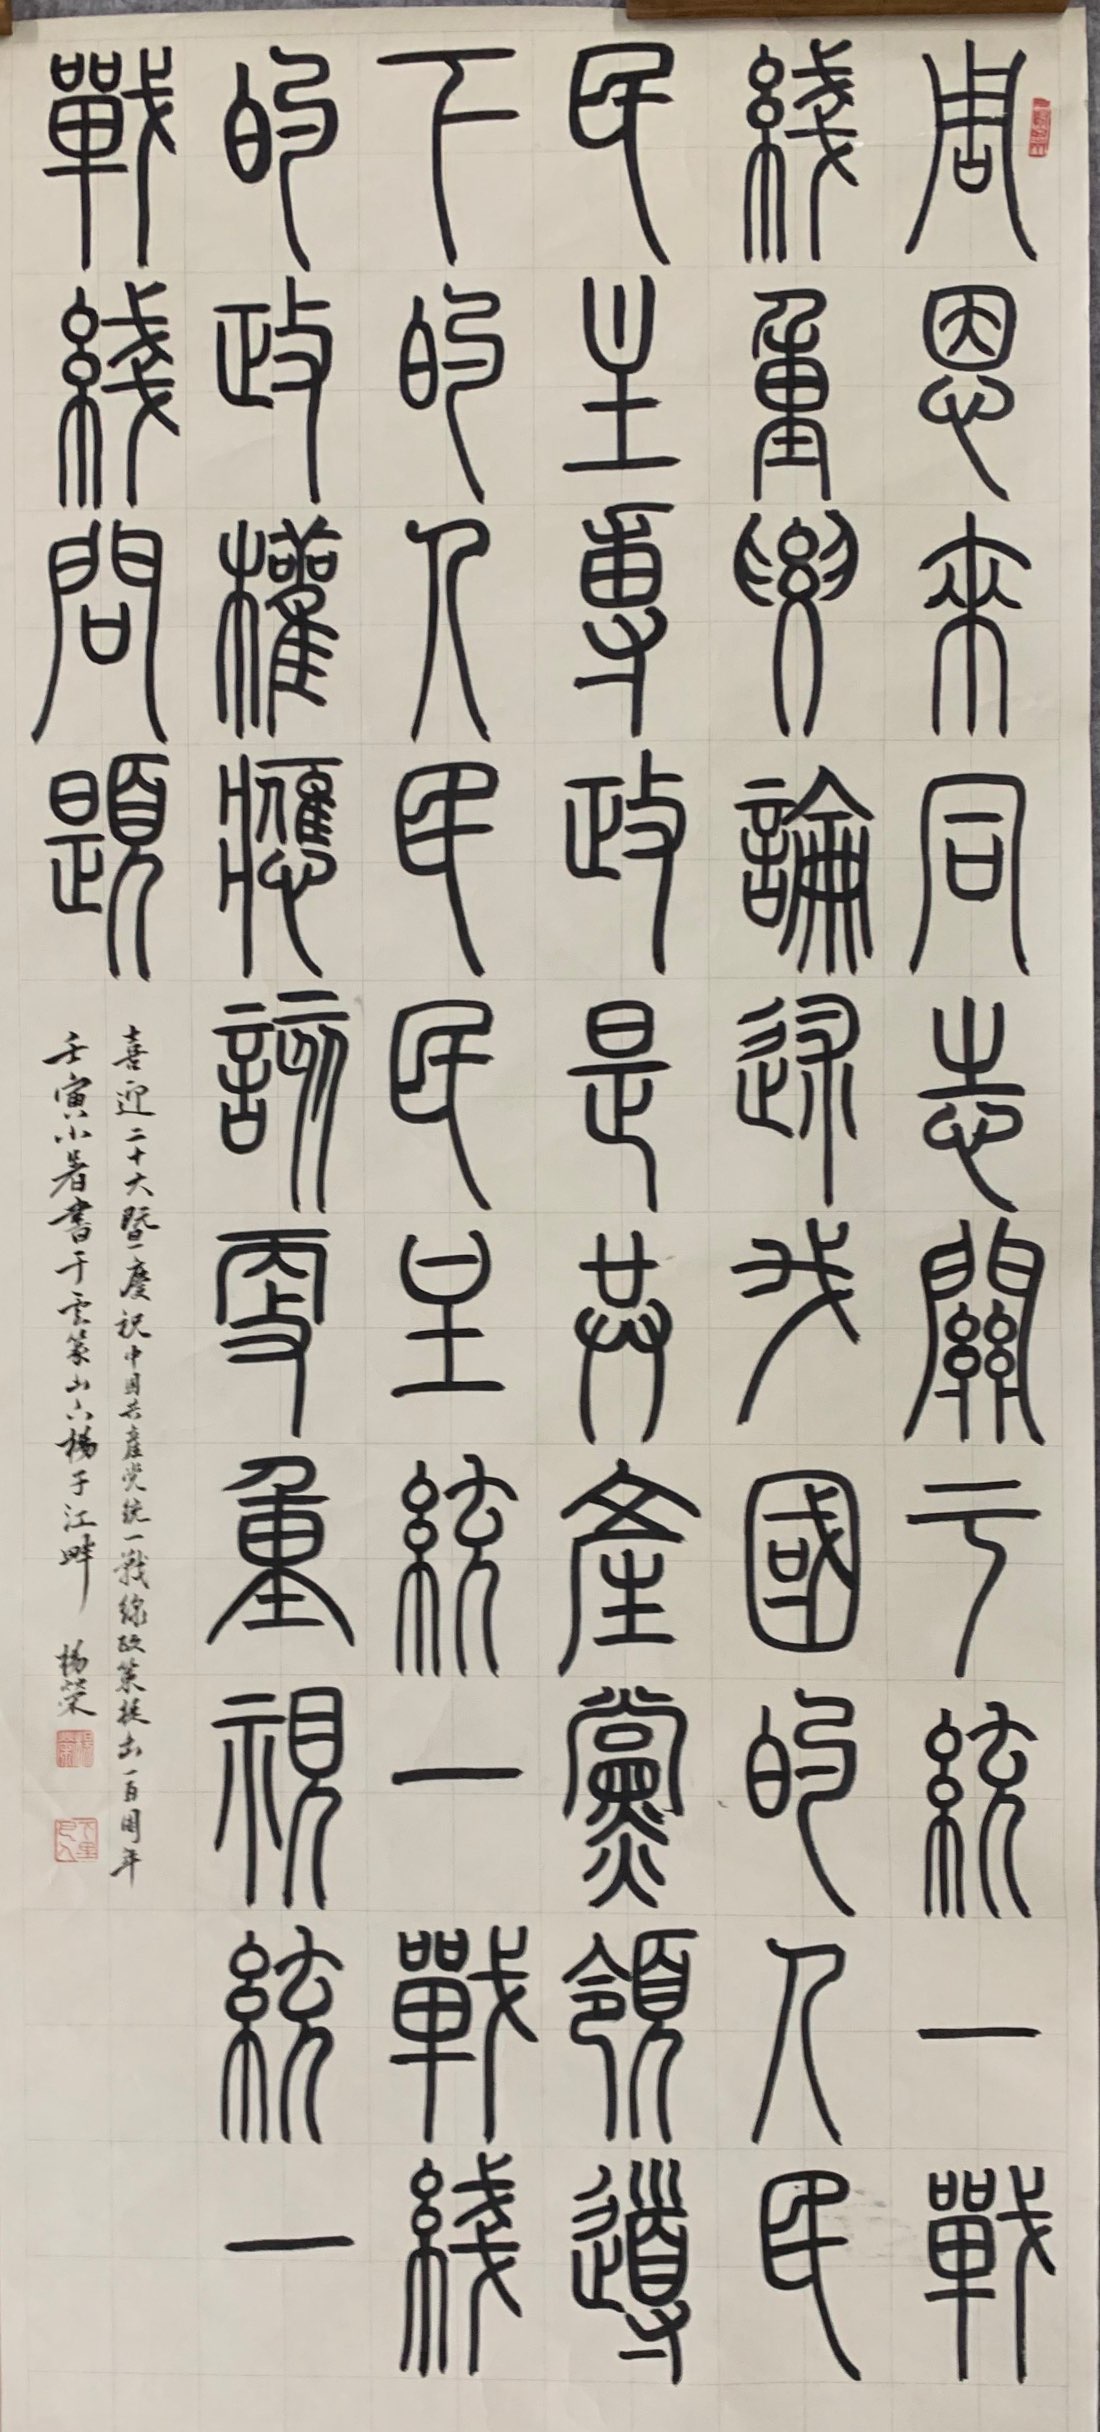 周恩来同志關于統一戰
綫重要論述我國的人民
民主專政是共產黨領導
下的人民民主統一戰綫
的政權應該更重視統一
戰綫問題
喜迎二十大暨慶祝中国共產党統一戰線政策提出一百周年
壬寅小暑書于雲篆山下楊子江畔 楊榮